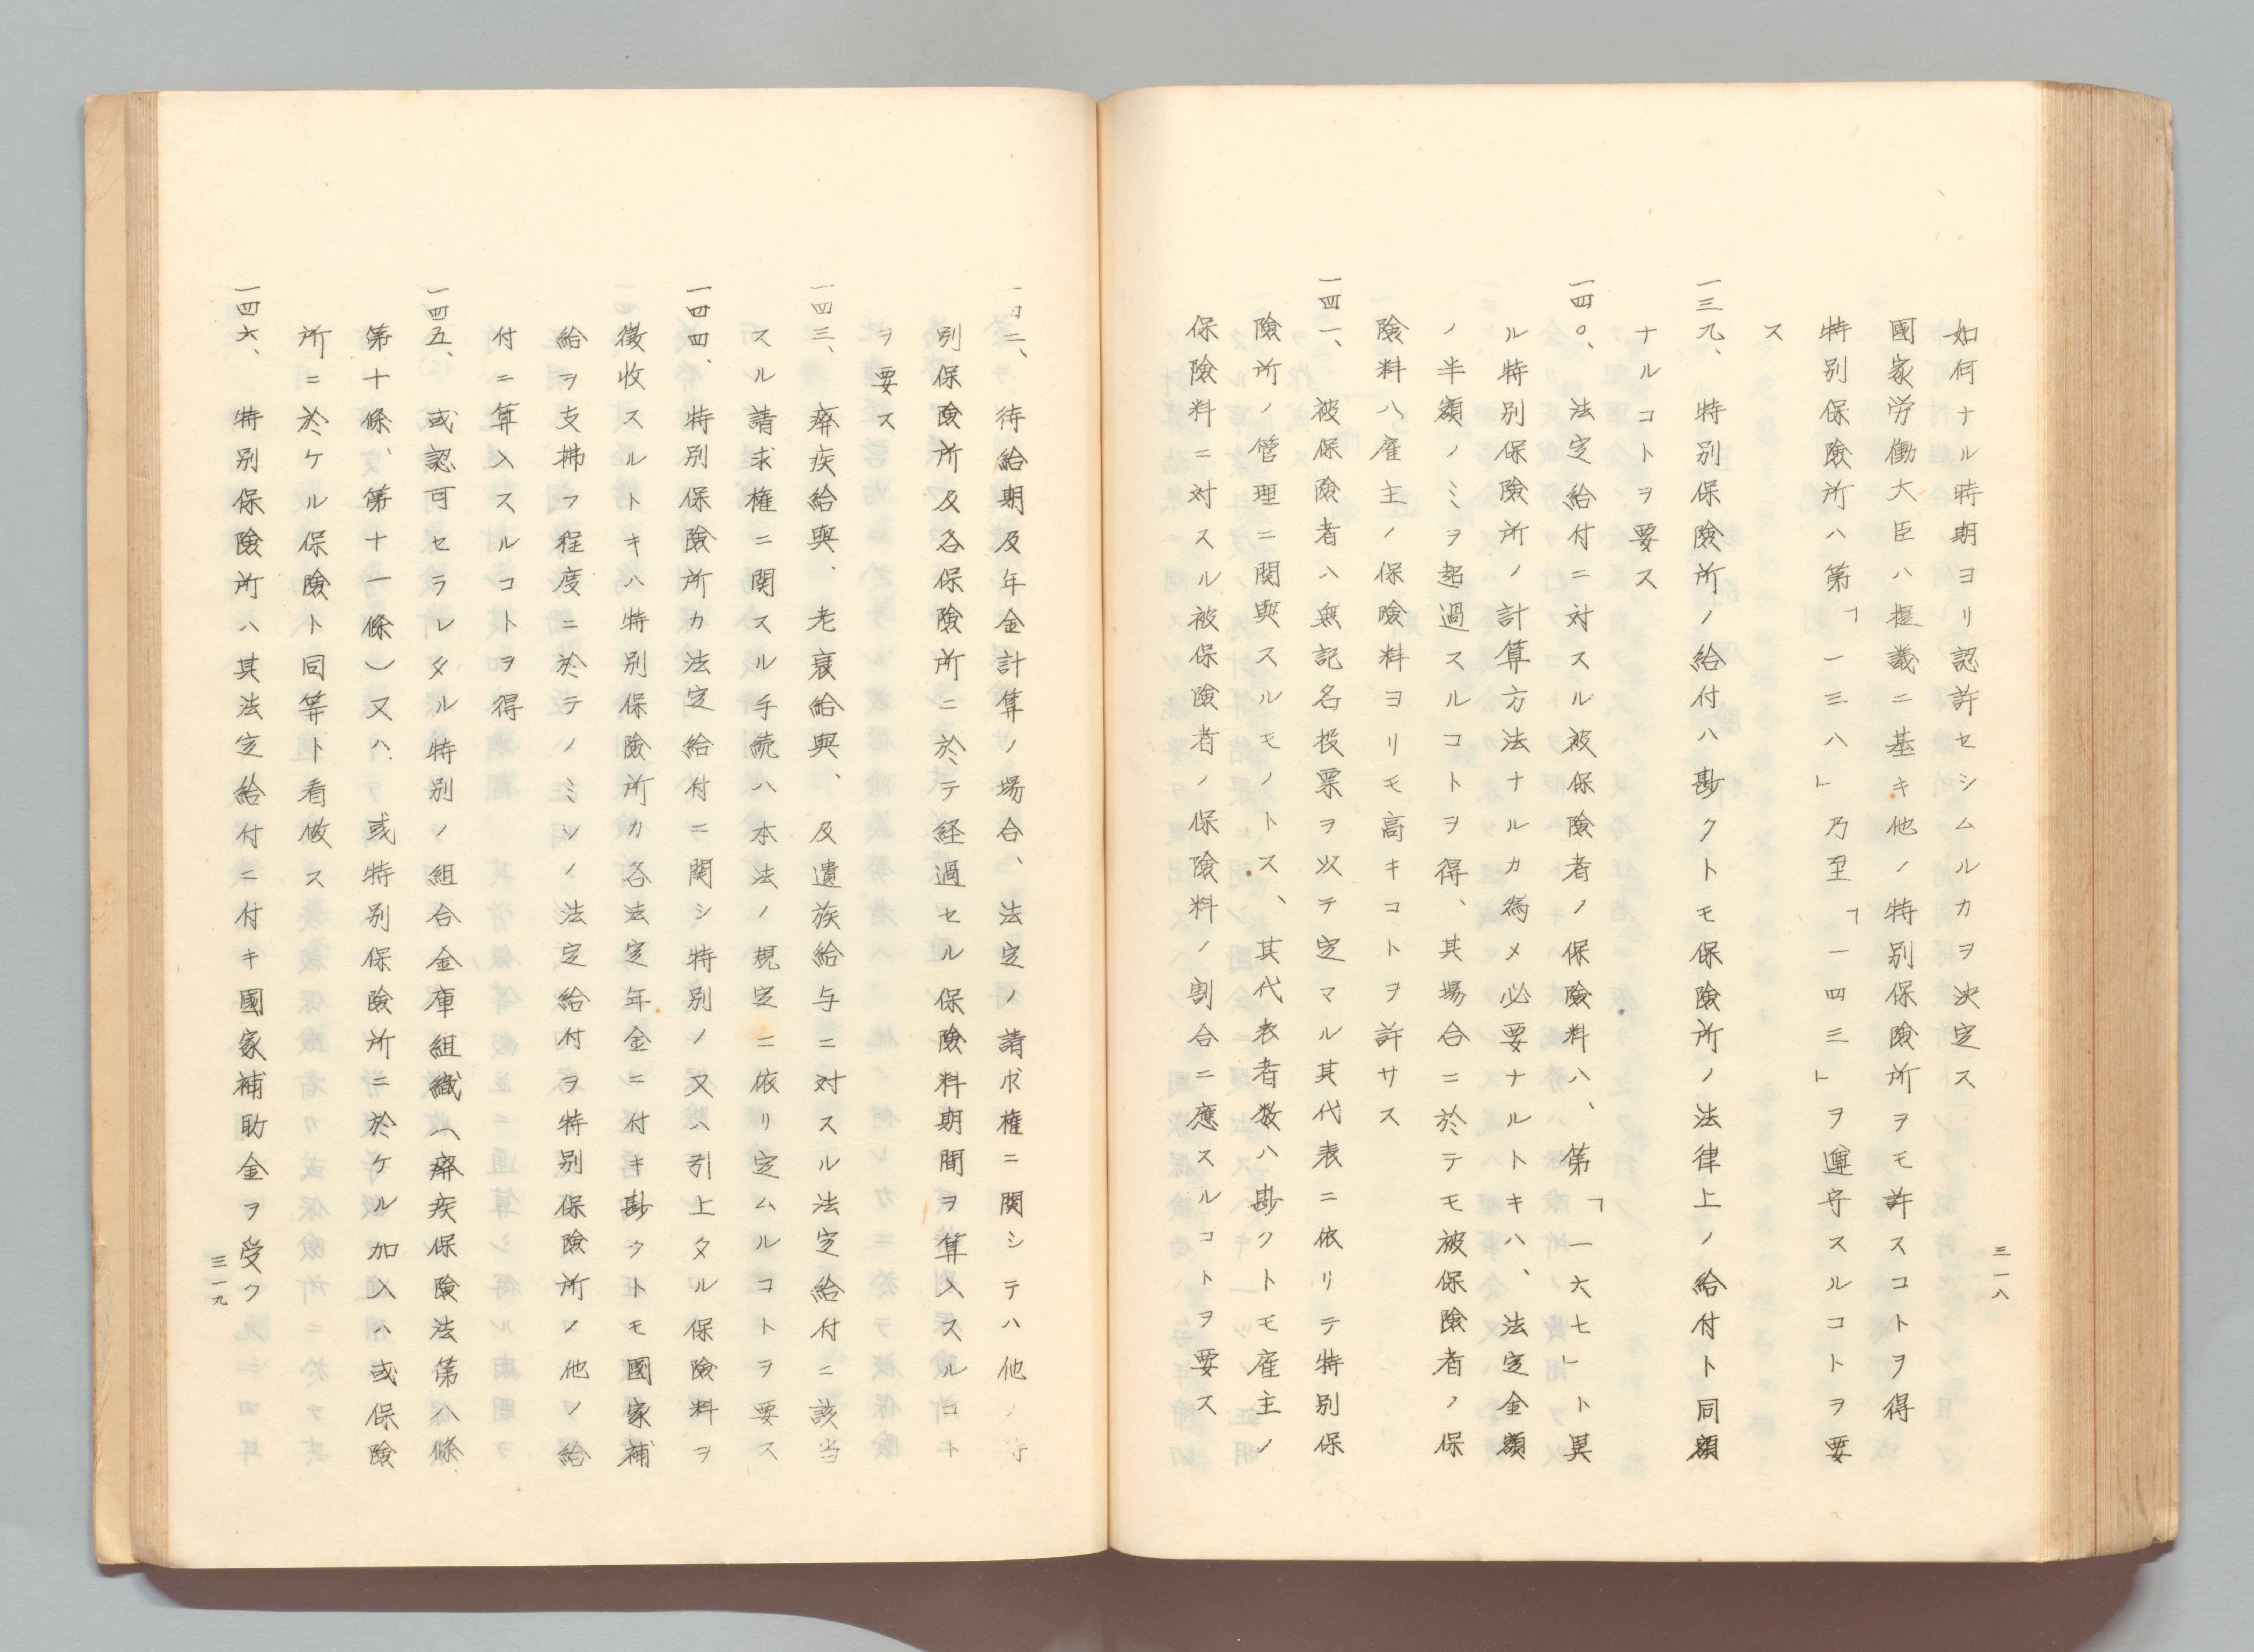 如何ナル時期ヨリ認許セシムルカヲ決定ス
國家労働大臣ハ樞議ニ基キ他ノ特別保險所ヲモ許スコトヲ得
特別保險所ハ第「一三八」乃至「一四三」ヲ遵守スルコトヲ要
ス
一三九、特別保險所ノ給付ハ尠クトモ保險所ノ法律上ノ給付ト同額
ナルコトヲ要ス
一四〇、法定給付ニ対スル被保險者ノ保險料ハ、第「一六七」ト異
ル特別保險所ノ計算方法ナルカ爲メ必要ナルトキハ、法定金額
ノ半額ノミヲ超過スルコトヲ得、其場合ニ於テモ被保險者ノ保
險料ハ雇主ノ保險料ヨリモ高キコトヲ許サス
一四一、被保險者ハ無記名投票ヲ以テ定マル其代表ニ依リテ特別保
險所ノ管理ニ関與スルモノトス、其代表者数ハ尠クトモ雇主ノ
保險料ニ対スル被保險者ノ保險料ノ割合ニ應スルコトヲ要ス
三一八
一四二、待給期及年金計算ノ場合、法定ノ請求権ニ関シテハ他ノ特
別保險所及各保險所ニ於テ経過セル保險料期間ヲ算入スルコト
ヲ要ス
一四三、癈疾給與、老衰給與、及遺族給与ニ対スル法定給付ニ該当
スル請求権ニ関スル手続ハ本法ノ規定ニ依リ定ムルコトヲ要ス
一四四、特別保險所カ法定給付ニ関シ特別ノ又ハ引上タル保險料ヲ
徴收スルトキハ特別保險所カ各法定年金ニ付キ尠クトモ國家補
給ヲ支拂フ程度ニ於テノミソノ法定給付ヲ特別保險所ノ他ノ給
付ニ算入スルコトヲ得
一四五、或認可セラレタル特別ノ組合金庫組織（癈疾保險法第八條
第十條、第十一條）又ハ、或特別保險所ニ於ケル加入ハ或保險
所ニ於ケル保險ト同等ト看做ス
一四六、特別保險所ハ其法定給付ニ付キ國家補助金ヲ受ク
三一九